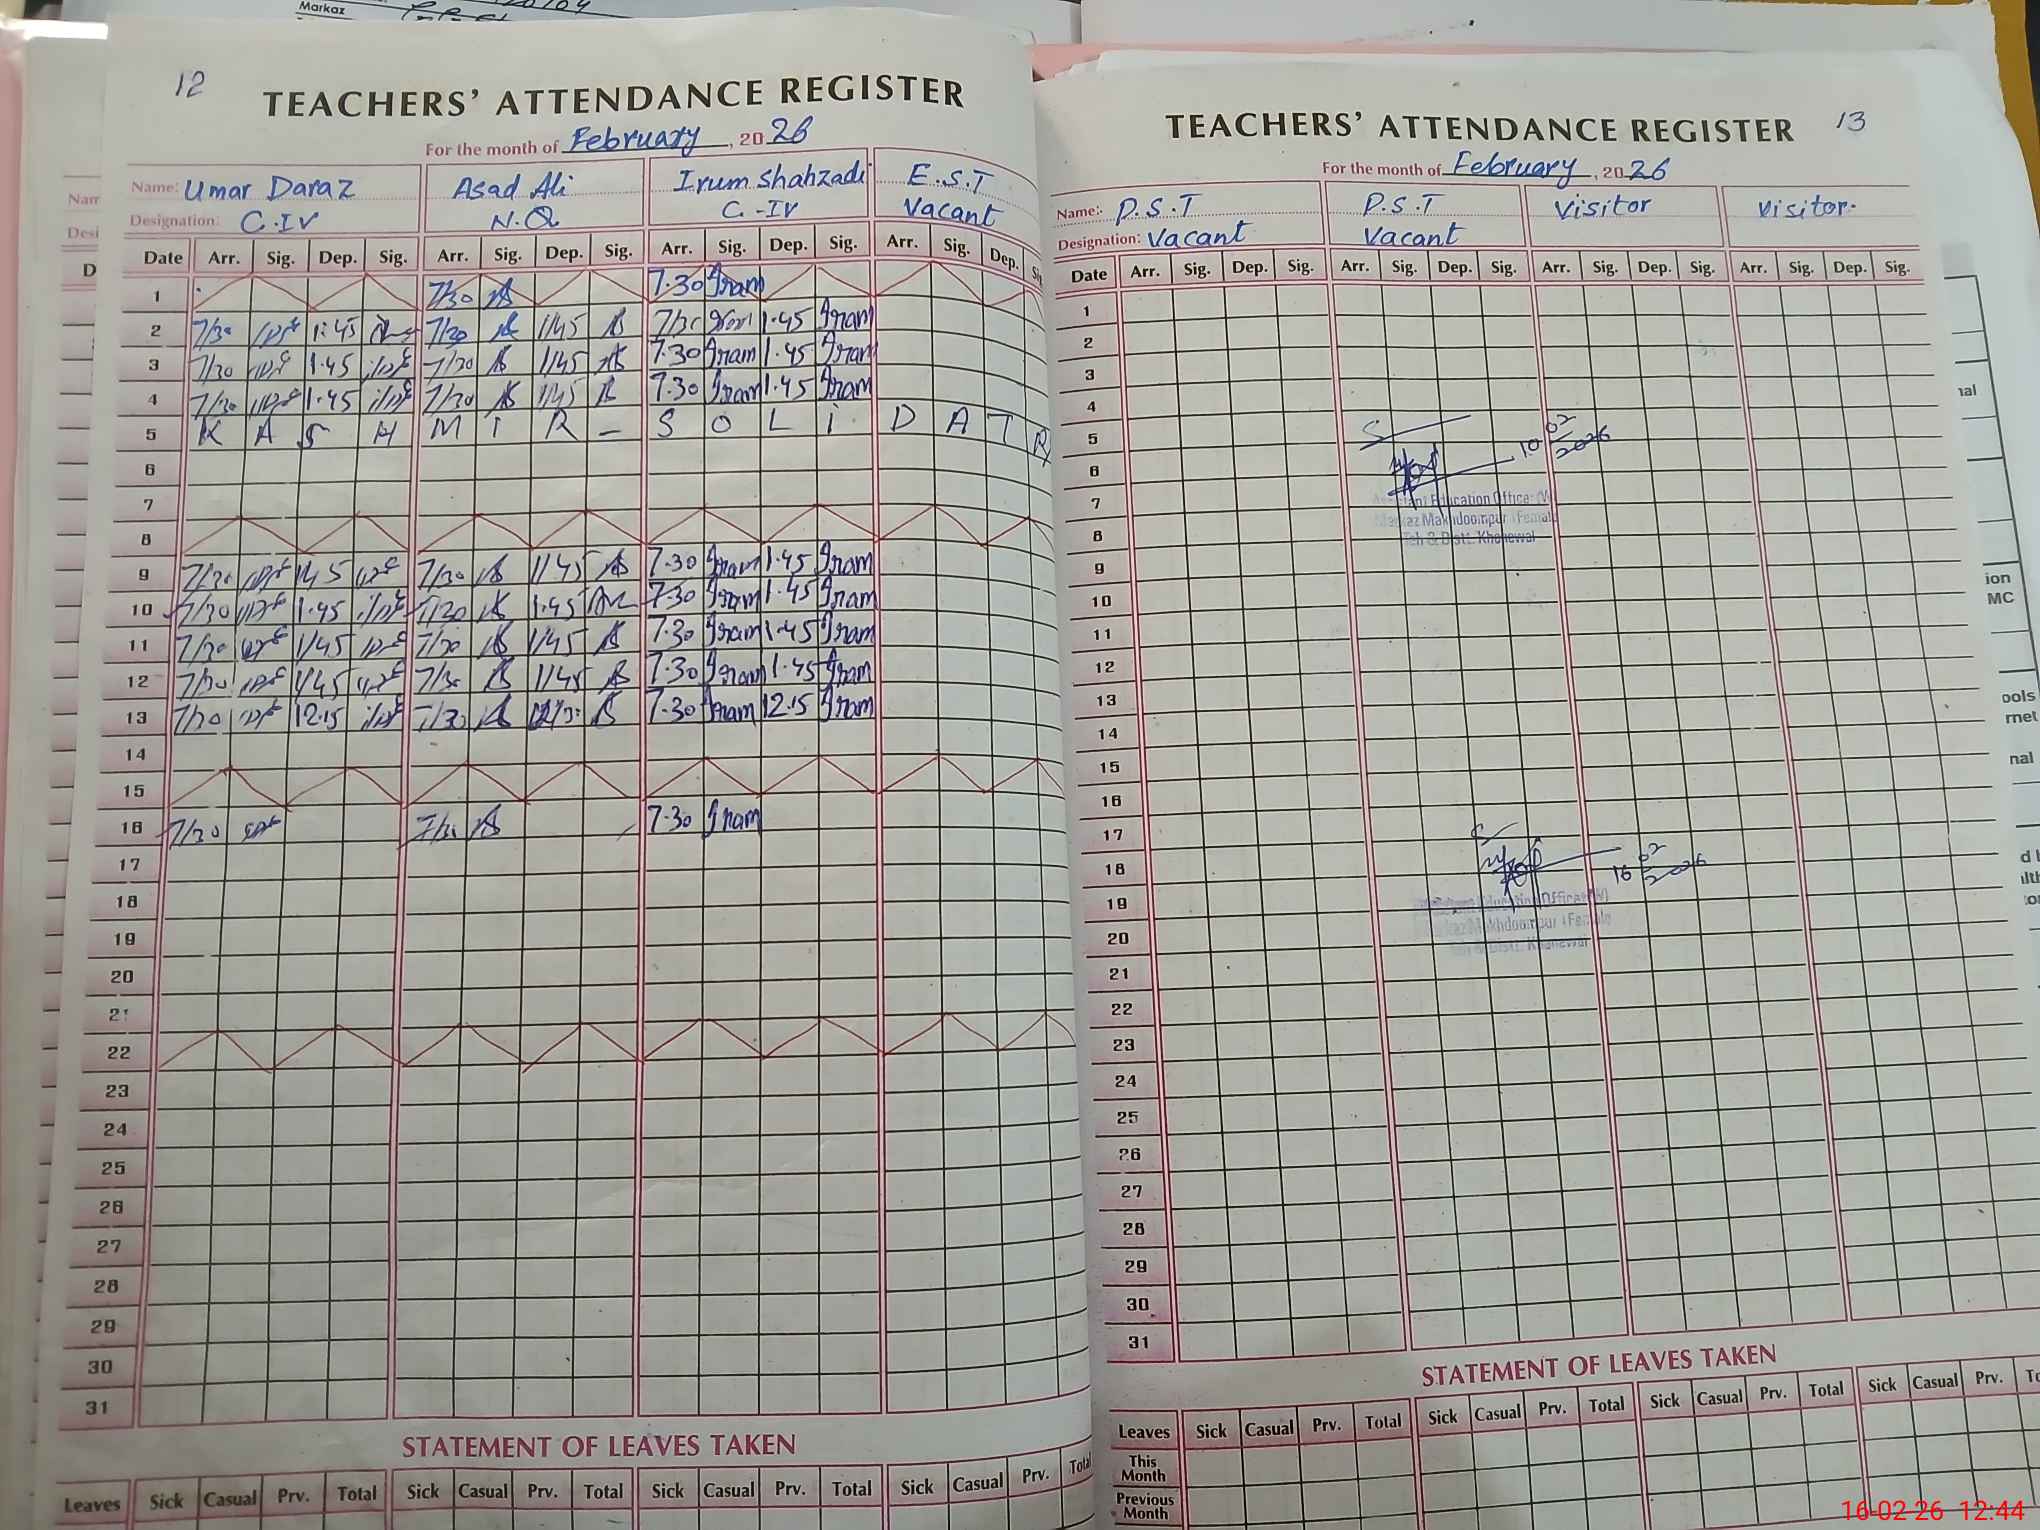 Markaz
12
TEACHERS' ATTENDANCE REGISTER
For the month of February, 2026
Name: Umar Daraz Asad Ali Irum Shahzadi E.S.T
Designation: C.IV N.Q C.-IV Vacant
Date Arr. Sig. Dep. Sig. Arr. Sig. Dep. Sig. Arr. Sig. Dep. Sig. Arr. Sig. Dep.
1 7/30 7.30 Iram
2 7/30 1:45 7/30 1/45 7/30 1.45 Iram
3 7/30 1.45 7/30 1/45 7.30 Iram 1.45 Iram
4 7/30 1.45 7/30 1/45 7.30 Iram 1.45 Iram
5 K A S H M I R - S O L I D A T R
6
7
8
9 7/30 1/45 7/30 1/45 7.30 Iram 1.45 Iram
10 7/30 1.45 7/30 1.45 7.30 Iram 1.45 Iram
11 7/30 1/45 7/30 1/45 7.30 Iram 1.45 Iram
12 7/30 1/45 7/30 1/45 7.30 Iram 1.45 Iram
13 7/30 12.15 7/30 7.30 Iram 12.15 Iram
14
15
16 7/30 7/30 7.30 Iram
17
18
19
20
21
22
23
24
25
26
27
28
29
30
31
STATEMENT OF LEAVES TAKEN
Leaves Sick Casual Prv. Total Sick Casual Prv. Total Sick Casual Prv. Total Sick Casual Prv. Total
13
TEACHERS' ATTENDANCE REGISTER
For the month of February, 2026
Name: P.S.T P.S.T Visitor Visitor.
Designation: Vacant Vacant
Date Arr. Sig. Dep. Sig. Arr. Sig. Dep. Sig. Arr. Sig. Dep. Sig. Arr. Sig. Dep. Sig.
1
2
3
4
5
10 02 2026
6
7
Assistant Education Officer (W)
Markaz Makhdoompur (Female)
8
Teh & Distt. Khanewal
9
10
11
12
13
14
15
16
17
18
16 02 2026
19
Assistant Education Officer (W)
Markaz Makhdoompur (Female)
20
Teh & Distt. Khanewal
21
22
23
24
25
26
27
28
29
30
31
STATEMENT OF LEAVES TAKEN
Leaves Sick Casual Prv. Total Sick Casual Prv. Total Sick Casual Prv. Total Sick Casual Prv.
This Month
Previous Month
16-02-26 12:44